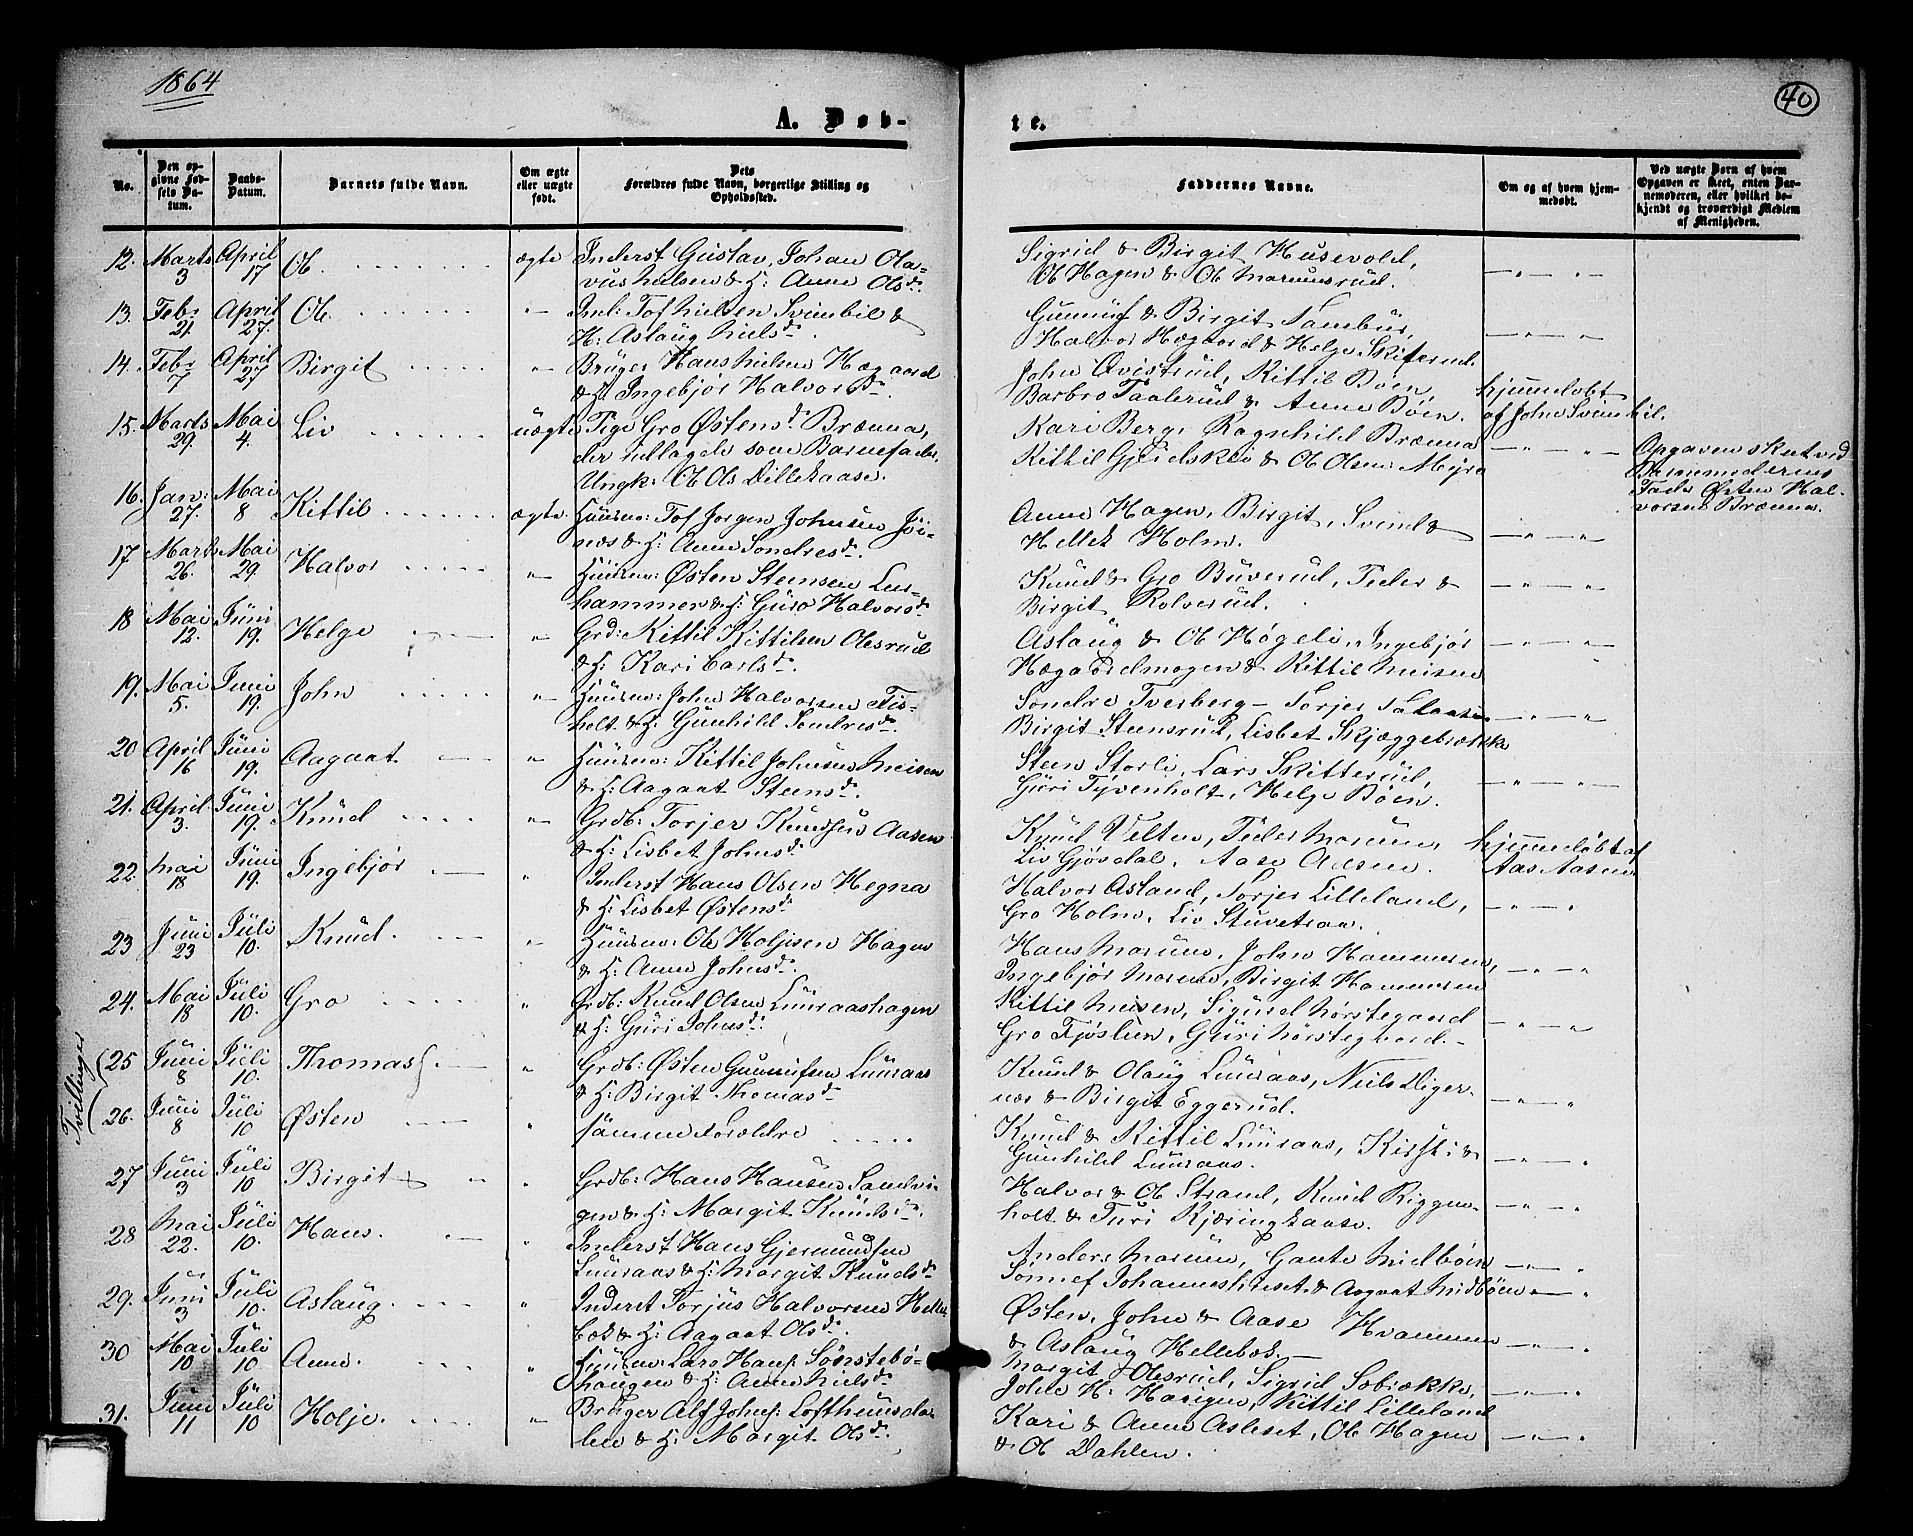 1864
40
A. Døb-
te.
No.
Den op-
givne Fød-
sels Da-
tum.
Daabs-
Datum.
Barnets fulde Navn.
Om ægte
eller uægte
født.
Dets
Forældres fulde Navn, borgerlige Stilling og
Opholdssted.
Faddernes Navne.
Om og af hvem hjem-
medøbt.
Ved uægte Børn af hvem
Opgaven er skeet, enten Bar-
nemoderen, eller hvilket be-
kjendt og troværdigt Medlem
af Menigheden.
12. Marts 3 April 17 Ob ægte Inderst Gustav Johan Ola-
vus Nielsen & H: Anne Olsd.
Sigrid & Birgit Husevold,
Ob Hagen & Ob Marumsrud.
13. Febr 21 April 27. Ob " Inl: Tof Nielsen Svimbil &
H: Aslaug Nielsd.
Gunnuf & Birgit Sambur,
Halvor Hægaard & Helge Skiferud.
14. Febr 7 April 27 Birgit " Bruger Hans Nielsen Hægaard
& H: Ingebjør Halvorsd.
John Qvistrud, Kittil Bøen
Barbro Taalerud & Anne Bøen.
hjemmedøbt
af John Svimbil.
15. Marts 29. Mai 4. Liv uægte Pige Gro Østensd. Brænna,
der udlagde som Barnefader
Ungk: Ob Ols Dillekaase.
Kari Berg, Ragnhild Brænna
Kittil Gjeldskeio & Ob Olsen Myra
Opgaven skeet ved
Barnemoderens
Fader Østen Hal-
vorsen Brænna.
16. Jan: 27. Mai 8 Kittil ægte Huusm: Tof Jorgen Johnsen Jøi-
næs & H: Anne Sondresd.
Anne Hagen, Birgit, Svend &
Hellek Holm.
17 Marts 26. Mai 29. Halvor " Huusm: Østen Steensen Lur-
hammer & H: Guro Halvorsd.
Knud & Gro Buverud, Peder &
Birgit Rolverud.
18 Mai 12. Juni 19. Helge " Grd: Kittil Kittilsen Olesrud
& H: Kari Carlsd.
Aslaug & Ob Høgeli, Ingebjør
Hægaardmogen & Kittil Meisen
19. Mai 5. Juni 19. John " Huusm: John Halvorsen Fis-
holt & H: Gunhild Sondresd.
Sondre Tverberg
Birgit Steensrud, Lisbet Skjæggebrække
20 April 16 Juni 19. Aagaat " Huusm: Kittil Johnsen Meisen
& H: Aagaat Steensd.
Steen Storli, Lars Skitterud,
Guri Tyvenholt, Helge Bøen.
21. April 3. Juni 19. Knud " Grdb: Torjer Knudsen Aasen
& H: Lisbet Johnsd.
Knud Velten, Peder Marum,
Liv Gjøvdal, Aase Aasen.
hjemmedøbt af
Aas Aasen
22. Mai 18 Juni 19. Ingebjør " Inderst Hans Olsen Hegna
& H: Lisbet Østensd.
Halvor Asland, Torjer Lilleland,
Gro Holm, Liv Stuvetraa.
23 Juni 23 Juli 10. Knud. " Huusm: Ole Holjesen Hagen
& H: Anne Johnsd.
Hans Marum, John Hammersen,
Ingebjør Marum, Birgit Hammersen
24. Mai 18 Juli 10. Gro " Grdb: Knud Olsen Luuraashagen
& H: Guri Johnsd.
Kittil Meisen, Sigurd Nørstegaard
Gro Fjøslien, Guri Nørstegaard.
Tvillinger
25 Juni 8 Juli 10. Thomas " Grdb: Østen Gunnufsen Luuraas
& H: Birgit Thomasd.
Knud & Olaug Luuraas, Niels Diger-
næs & Birgit Eggerud.
26. Juni 8 Juli 10 Østen " samme Forældre
Knud & Kittil Luuraas, Kirsti &
Gunhild Luuraas.
27 Juni 3 Juli 10 Birgit " Grdb: Hans Hansen Sandvi-
gen & H: Margit Knudsd.
Halvor & Ob Strand, Knud Riggen-
holt & Turi Kjæringkaase.
28 Mai 22. Juli 10. Hans. " Inderst Hans Gjermundsen
Luuraas & H: Margit Knudsd.
Anders Marum, Gaute Midbøen
Sønnef Johanneshuset & Aagaat Midbøen
29. Juni 3 Juli 10. Aslaug. " Inderst Torjus Halvorsen Helle-
bæk & H: Aagaat Olsd.
Østen, John & Aase Hvammen
& Aslaug Hellebæk.
30 Mai 10 Juli 10 Anne. " Huusm: Lars Hans: Sønstebø-
haugen & H: Anne Nielsd.
Margit Olesrud, Sigrid Sobrække,
John H: Haugen, Kittil Lilleland
31. Juni 11 Juli 10 Holje. " Bruger Alf Johns: Lofthuusda-
len & H: Margit Olsd.
Kari & Anne Asleset, Ob Hagen
& Ob Dahlen.